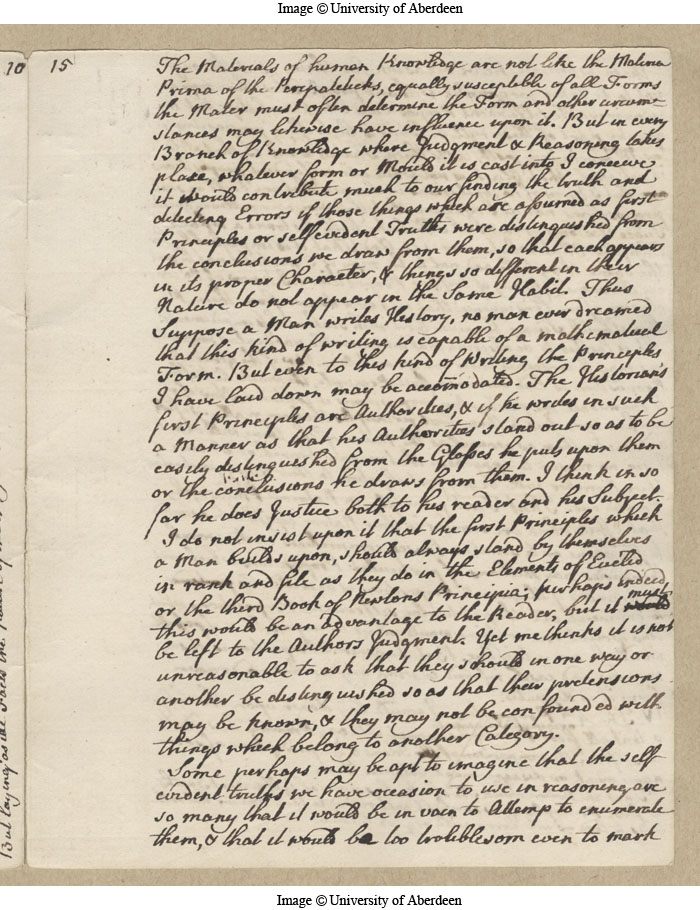 Image © University of Aberdeen
10
15
The Materials of human Knowledge are not like the Materia
Prima of the Peripateticks, equally susceptible of all Forms
the Mater must often determine the Form and other circum-
stances may likewise have influence upon it. But in every
Branch of Knowledge where Judgment & Reasoning takes
place, whatever form or Mould it is cast into I conceive
it would contribute much to our finding the truth and
detecting Errors if those things which are assumed as first
Principles or self evident Truths were distinguished from
the conclusions we draw from them, so that each appears
in its proper Character, & things so different in their
Nature do not appear in the Same Habit. Thus
Suppose a Man writes History, no man ever dreamed
that this kind of writing is capable of a mathematical
Form. But even to this kind of Writing the Principles
I have laid down may be accomodated. The Historian's
first Principles are Authorities, & if he writes in such
a Manner as that his Authorities stand out so as to be
easily distinguished from the Glosses he puts upon them
or the conclusions he draws from them. I think in so
far he does Justice both to his reader and his Subject.
I do not insist upon it that the first Principles which
a Man builds upon, should always stand by themselves
in rank and file as they do in the Elements of Euclid
or the third Book of Newtons Principia; perhaps indeed
this would be an advantage to the Reader, but it would must
be left to the Authors Judgment. Yet methinks it is not
unreasonable to ask that they should in one way or
another be distinguished so as that their pretensions
may be known, & they may not be confounded with
things which belong to another Category.
Some perhaps may be apt to imagine that the self
evident truths we have occasion to use in reasoning are
so many that it would be in vain to Attemp to enumerate
them, & that it would be too troublesom even to mark
But laying aside
Image © University of Aberdeen